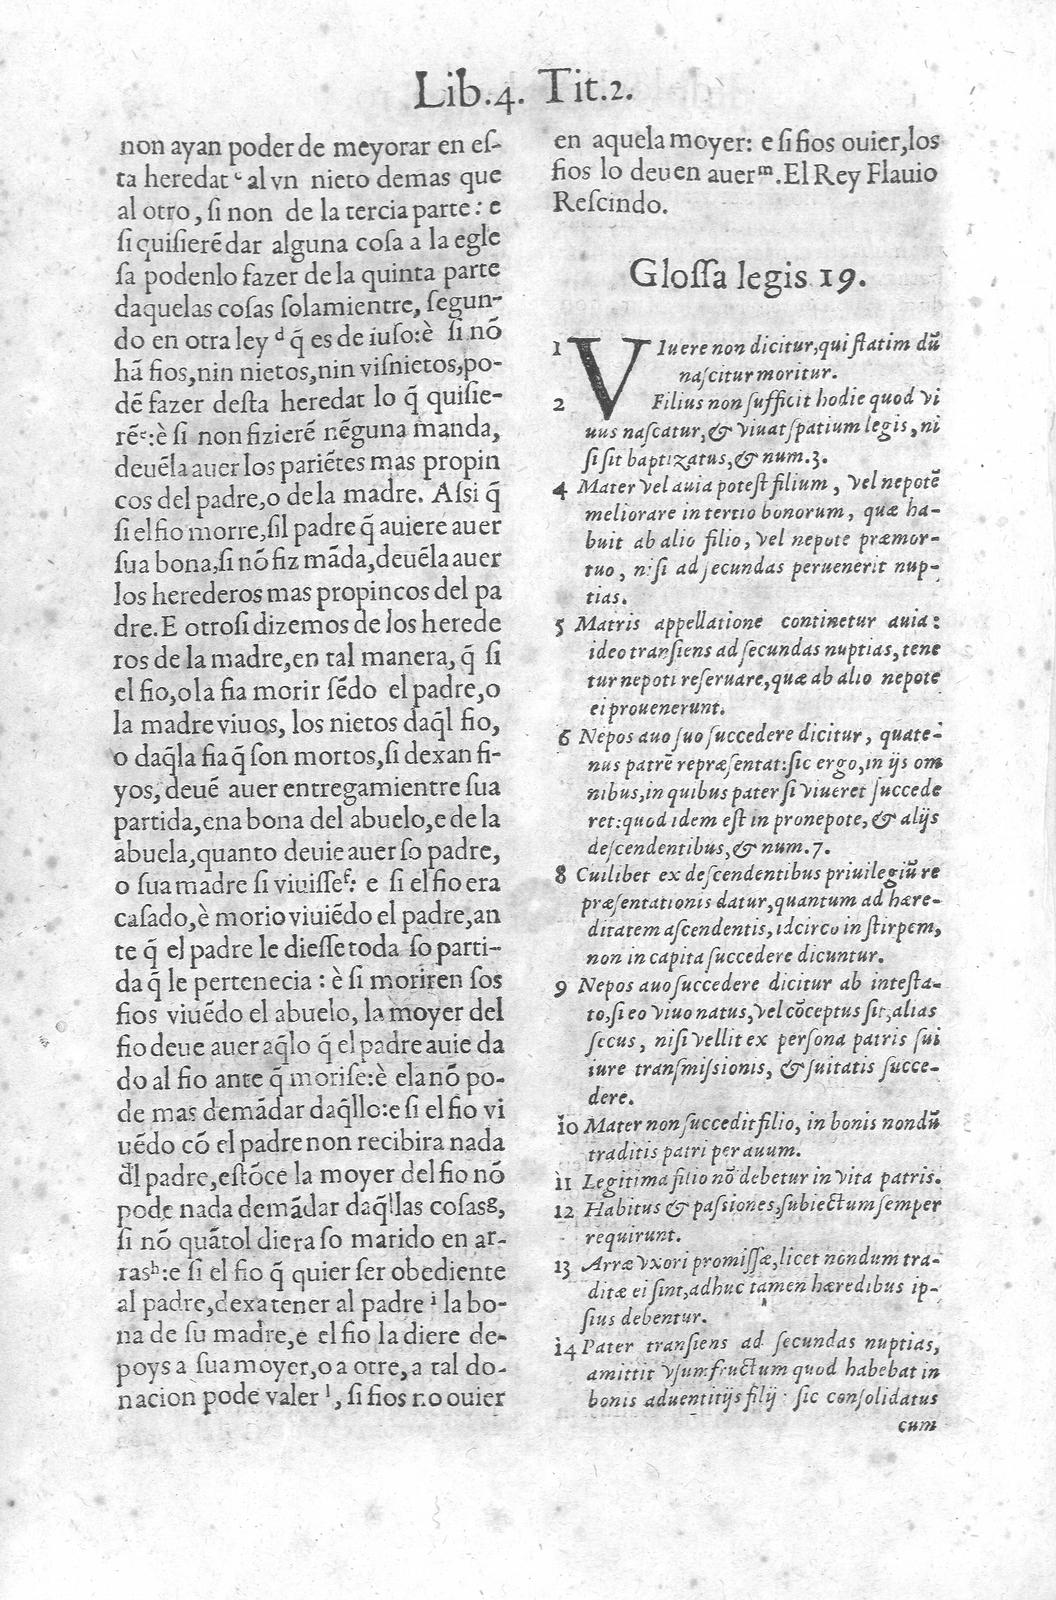 Lib.4. Tit.2.
non ayan poder de meyorar en eſ-
ta heredat ᶜ al vn nieto demas que
al otro, ſi non de la tercia parte: e
ſi quiſierẽ dar alguna coſa a la egle
ſa podenlo fazer de la quinta parte
daquelas coſas ſolamientre, ſegun-
do en otra ley ᵈ q̃ es de iuſo:è ſi nõ
hã fios,nin nietos,nin viſnietos,po-
dẽ fazer deſta heredat lo q̃ quiſie-
rẽᵉ:è ſi non fizierẽ nẽguna manda,
deuẽla auer los pariẽtes mas propin
cos del padre,o de la madre. Aſsi q̃
ſi el fio morre,ſil padre q̃ auiere auer
ſua bona,ſi nõ fiz mãda,deuẽla auer
los herederos mas propincos del pa
dre.E otroſi dizemos de los herede
ros de la madre,en tal manera, q̃ ſi
el fio,o la fia morir ſẽdo el padre,o
la madre viuos, los nietos daq̃l fio,
o daq̃la fia q̃ ſon mortos,ſi dexan fi-
yos, deuẽ auer entregamientre ſua
partida,ena bona del abuelo,e de la
abuela,quanto deuie auer ſo padre,
o ſua madre ſi viuiſſeᶠ: e ſi el fio era
caſado,è morio viuiẽdo el padre,an
te q̃ el padre le dieſſe toda ſo parti-
da q̃ le pertenecia : è ſi moriren ſos
fios viuẽdo el abuelo, la moyer del
fio deue auer aq̃lo q̃ el padre auie da
do al fio ante q̃ moriſe:è ela nõ po-
de mas demãdar daq̃llo:e ſi el fio vi
uẽdo cõ el padre non recibira nada
dl̃ padre,eſtõce la moyer del fio nõ
pode nada demãdar daq̃llas coſasᵍ,
ſi nõ quãtol diera ſo marido en ar-
rasʰ:e ſi el fio q̃ quier ſer obediente
al padre,dexa tener al padre ⁱ la bo-
na de ſu madre,e el fio la diere de-
poys a ſua moyer,o a otre,a tal do-
nacion pode valer ˡ, ſi fios no ouier
en aquela moyer: e ſi fios ouier,los
fios lo deuen auerᵐ.El Rey Flauio
Reſcindo.
Gloſſa legis 19.
1 VIuere non dicitur,qui ſtatim dũ
naſcitur moritur.
2 Filius non ſufficit hodie quod vi
uus naſcatur,& viuat ſpatium legis, ni
ſi ſit baptizatus,& num.3.
4 Mater vel auia poteſt filium, vel nepotẽ
meliorare in tertio bonorum, quæ ha-
buit ab alio filio, vel nepote præmor-
tuo, niſi ad ſecundas peruenerit nup-
tias.
5 Matris appellatione continetur auia:
ideo tranſiens ad ſecundas nuptias, tene
tur nepoti reſeruare,quæ ab alio nepote
ei prouenerunt.
6 Nepos auo ſuo ſuccedere dicitur, quate-
nus patrẽ repræſentat:ſic ergo,in ijs om
nibus,in quibus pater ſi viueret ſuccede
ret:quod idem eſt in pronepote, & alijs
deſcendentibus,& num.7.
8 Cuilibet ex deſcendentibus priuilegiũ re
præſentationis datur,quantum ad hære-
ditatem aſcendentis, idcirco in ſtirpem,
non in capita ſuccedere dicuntur.
9 Nepos auo ſuccedere dicitur ab inteſta-
to,ſi eo viuo natus,vel cõceptus ſit,alias
ſecus, niſi vellit ex perſona patris ſui
iure tranſmiſsionis, & ſuitatis ſucce-
dere.
10 Mater non ſuccedit filio, in bonis nondũ
traditis patri per auum.
11 Legitima filio nõ debetur in vita patris.
12 Habitus & paſsiones,ſubiectum ſemper
requirunt.
13 Arræ vxori promiſſæ,licet nondum tra-
ditæ ei ſint,adhuc tamen hæredibus ip-
ſius debentur.
14 Pater tranſiens ad ſecundas nuptias,
amittit vſumfructum quod habebat in
bonis aduentitijs filij: ſic conſolidatus
cum